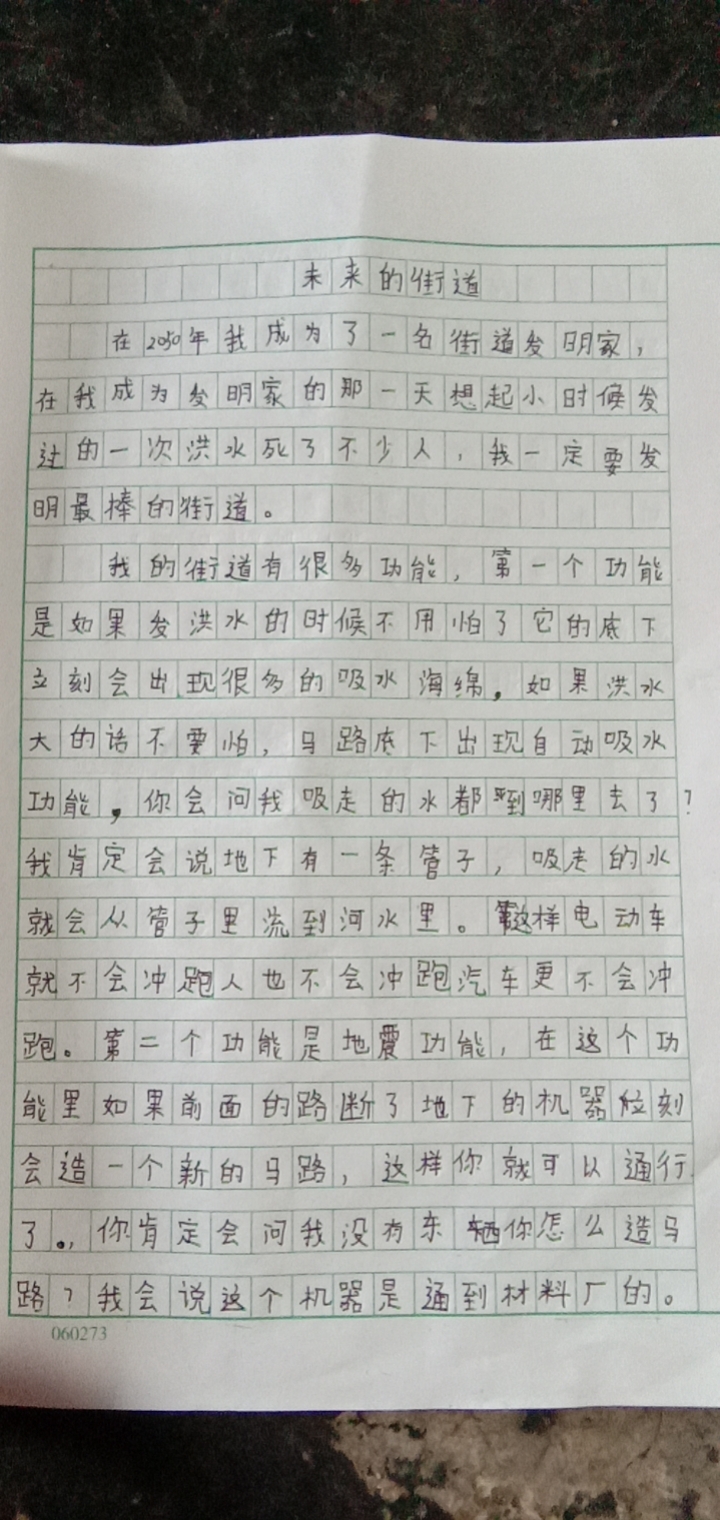 未来的街道
在2050年我成为了一名街道发明家，
在我成为发明家的那一天想起小时候发
过的一次洪水死了不少人，我一定要发
明最棒的街道。
我的街道有很多功能，第一个功能
是如果发洪水的时候不用怕了它的底下
立刻会出现很多的吸水海绵，如果洪水
大的话不要怕，马路底下出现自动吸水
功能，你会问我吸走的水都到哪里去了？
我肯定会说地下有一条管子，吸走的水
就会从管子里流到河水里。这样电动车
就不会冲跑人也不会冲跑汽车更不会冲
跑。第二个功能是地震功能，在这个功
能里如果前面的路断了地下的机器刻
会造一个新的马路，这样你就可以通行
了。，你肯定会问我没有东你怎么造马
路？我会说这个机器是通到材料厂的。
060273